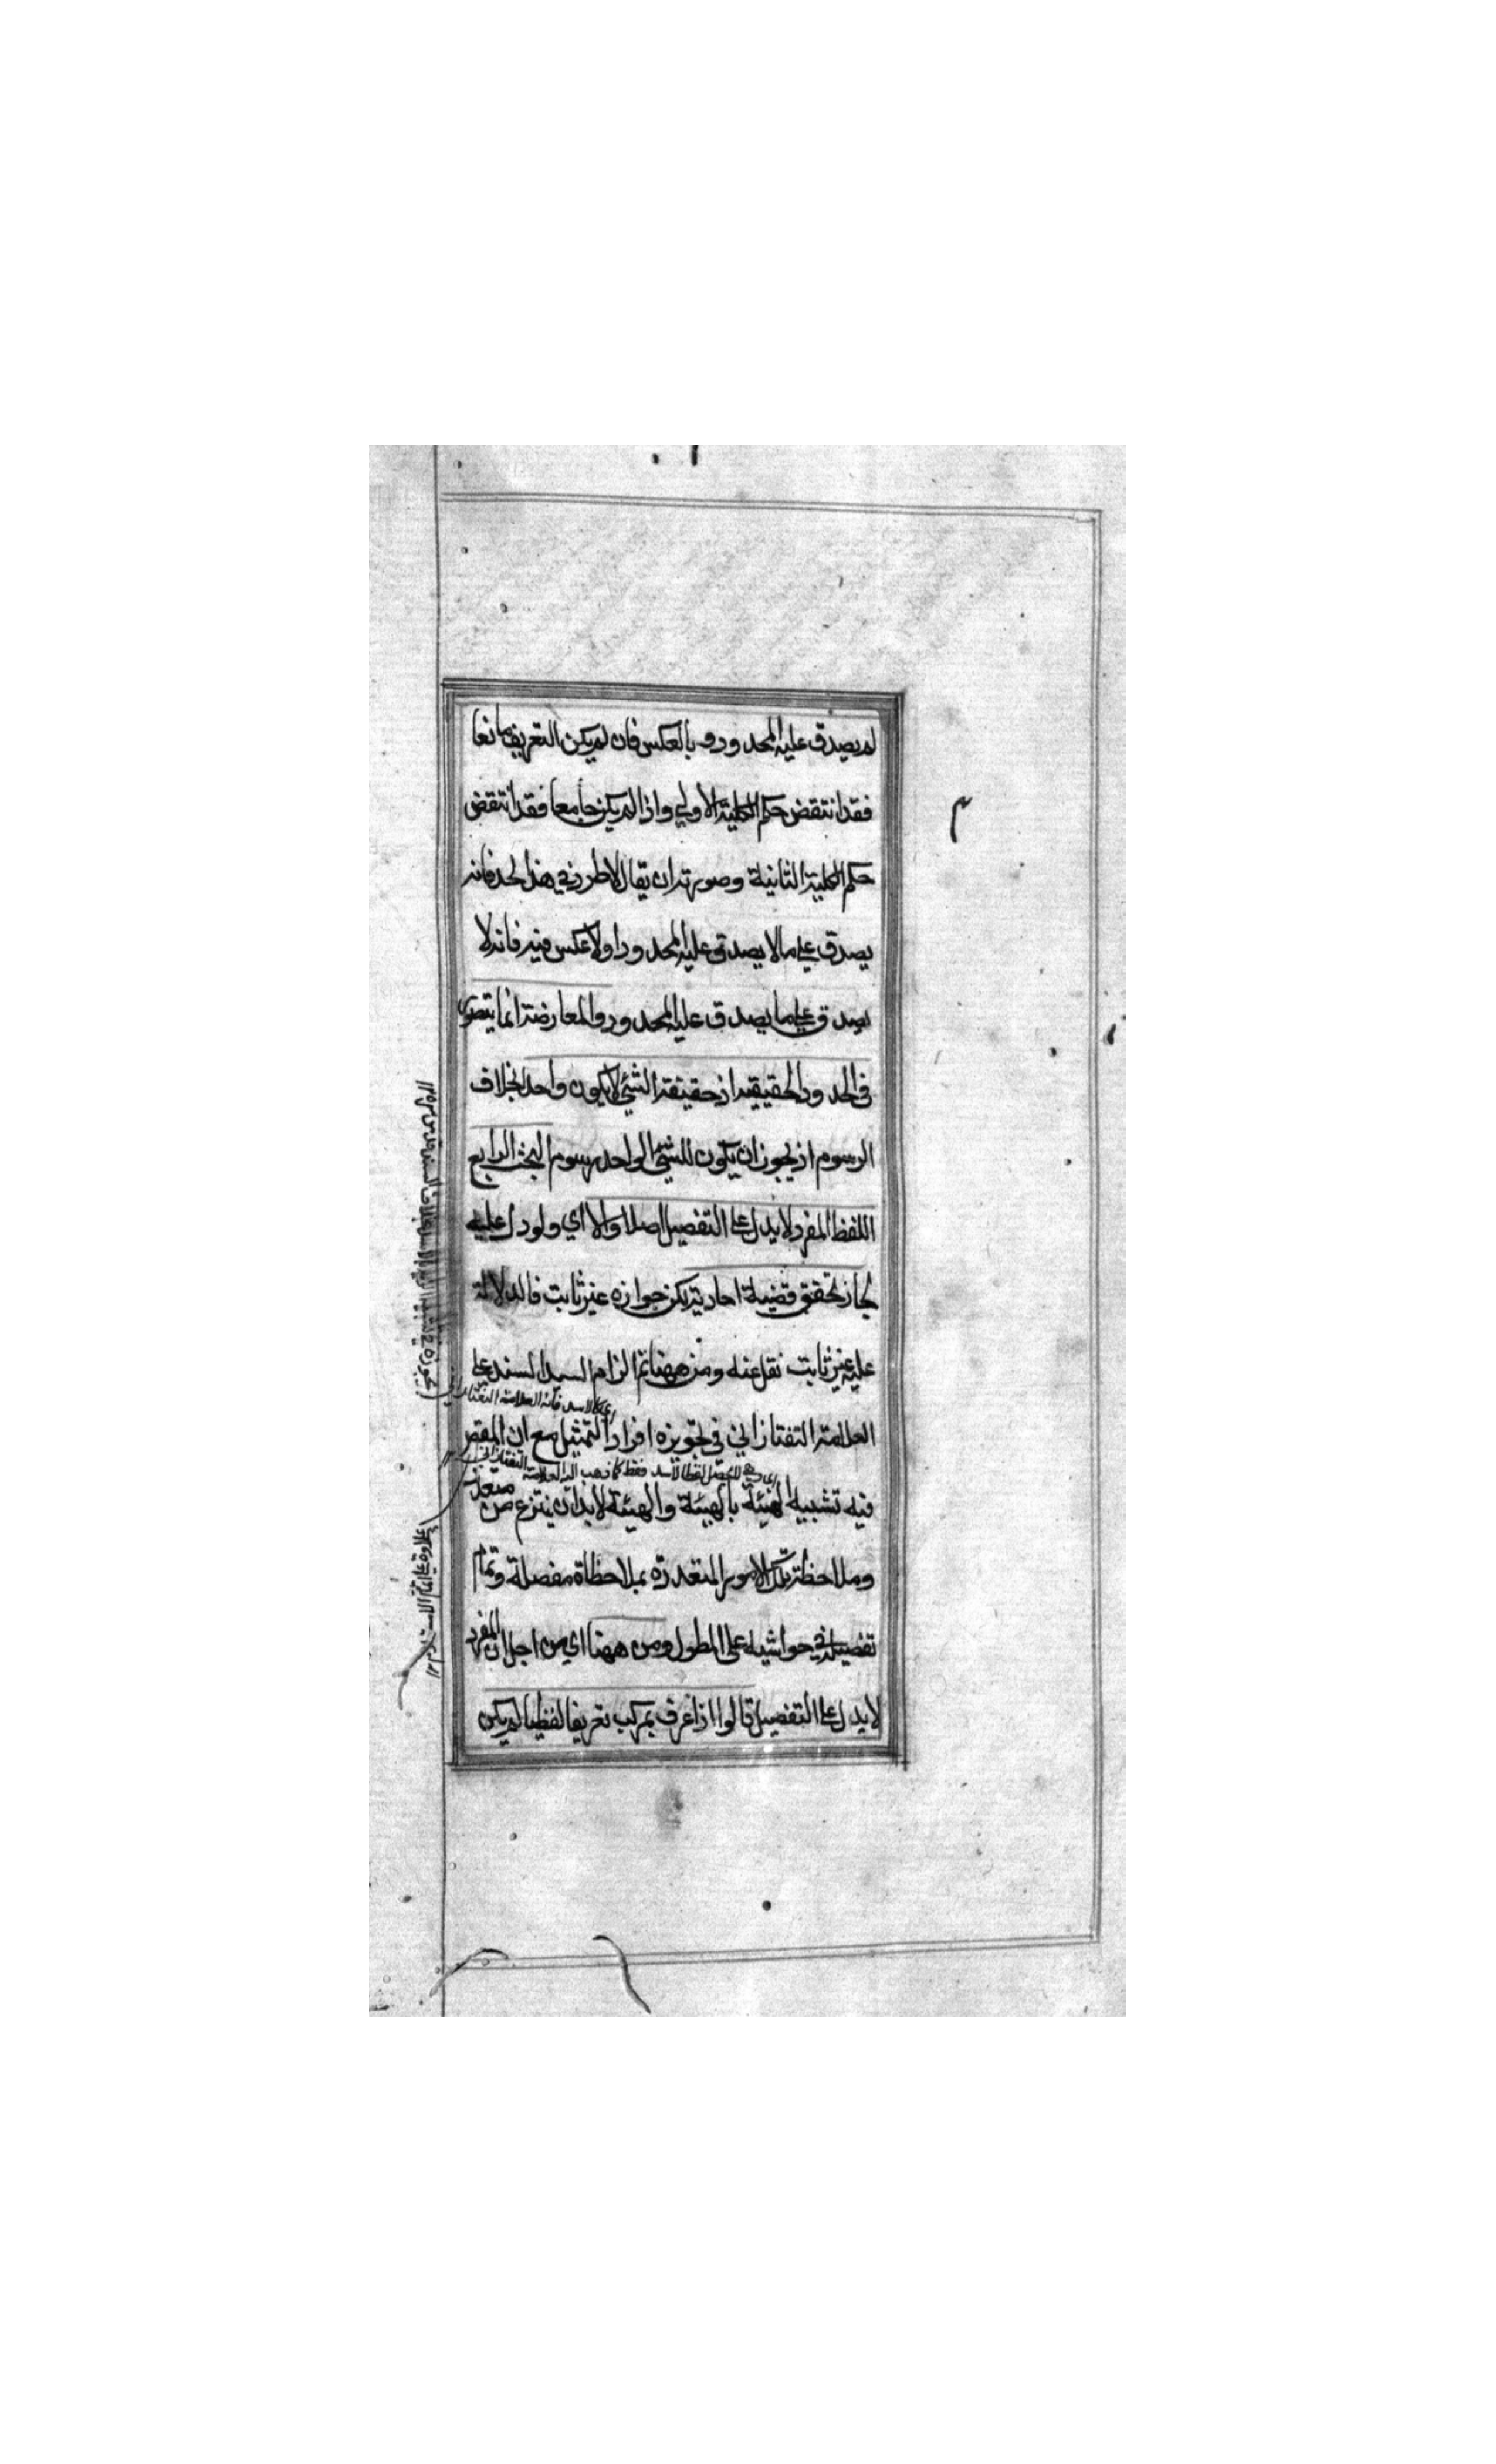 لم يصدق عليه المحدود وبالعكس فان لم يكن التعريف مانعا
فقد انتقض حكم الكلية الاولي واذا لم يكن جامعا فقد انتقض
حكم الكلية الثانية وصورته ان يقال لا طرد في هذا الحد فانه
يصدق علي ما لا يصدق عليه المحدود او لا عكس فيه فانه لا
يصدق علي ما يصدق عليه المحدود والمعارضة انما يتصور
في الحدود الحقيقية اذ حقيقة الشئ لا يكون واحد بخلاف
الرسوم اذ يجوز ان يكون للشئ الواحد رسوم البحث الرابع
اللفظ المفرد لا يدل علي التفصيل اصلا والا اي ولو دل عليه
لجاز تحقق قضية احادية لكن جوازه غير ثابت فالدلالة
عليه غير ثابت نقل عنه ومن ههنا تم الزام السيد السند علي
العلامة التفتازاني في تجويزه افراد التمثيل مع ان المقص
فيه تشبيه الهيئة بالهيئة والهيئة لا بد ان ينتزع من متعدد
وملاحظة تلك الامور المتعددة بملاحظاة مفصلة وتمام
تفصيله في حواشيه علي المطول ومن ههنا اي من اجل ان المفرد
لا يدل علي التفصيل قالوا اذا عرف بمركب تعريفا لفظيا لم يكن